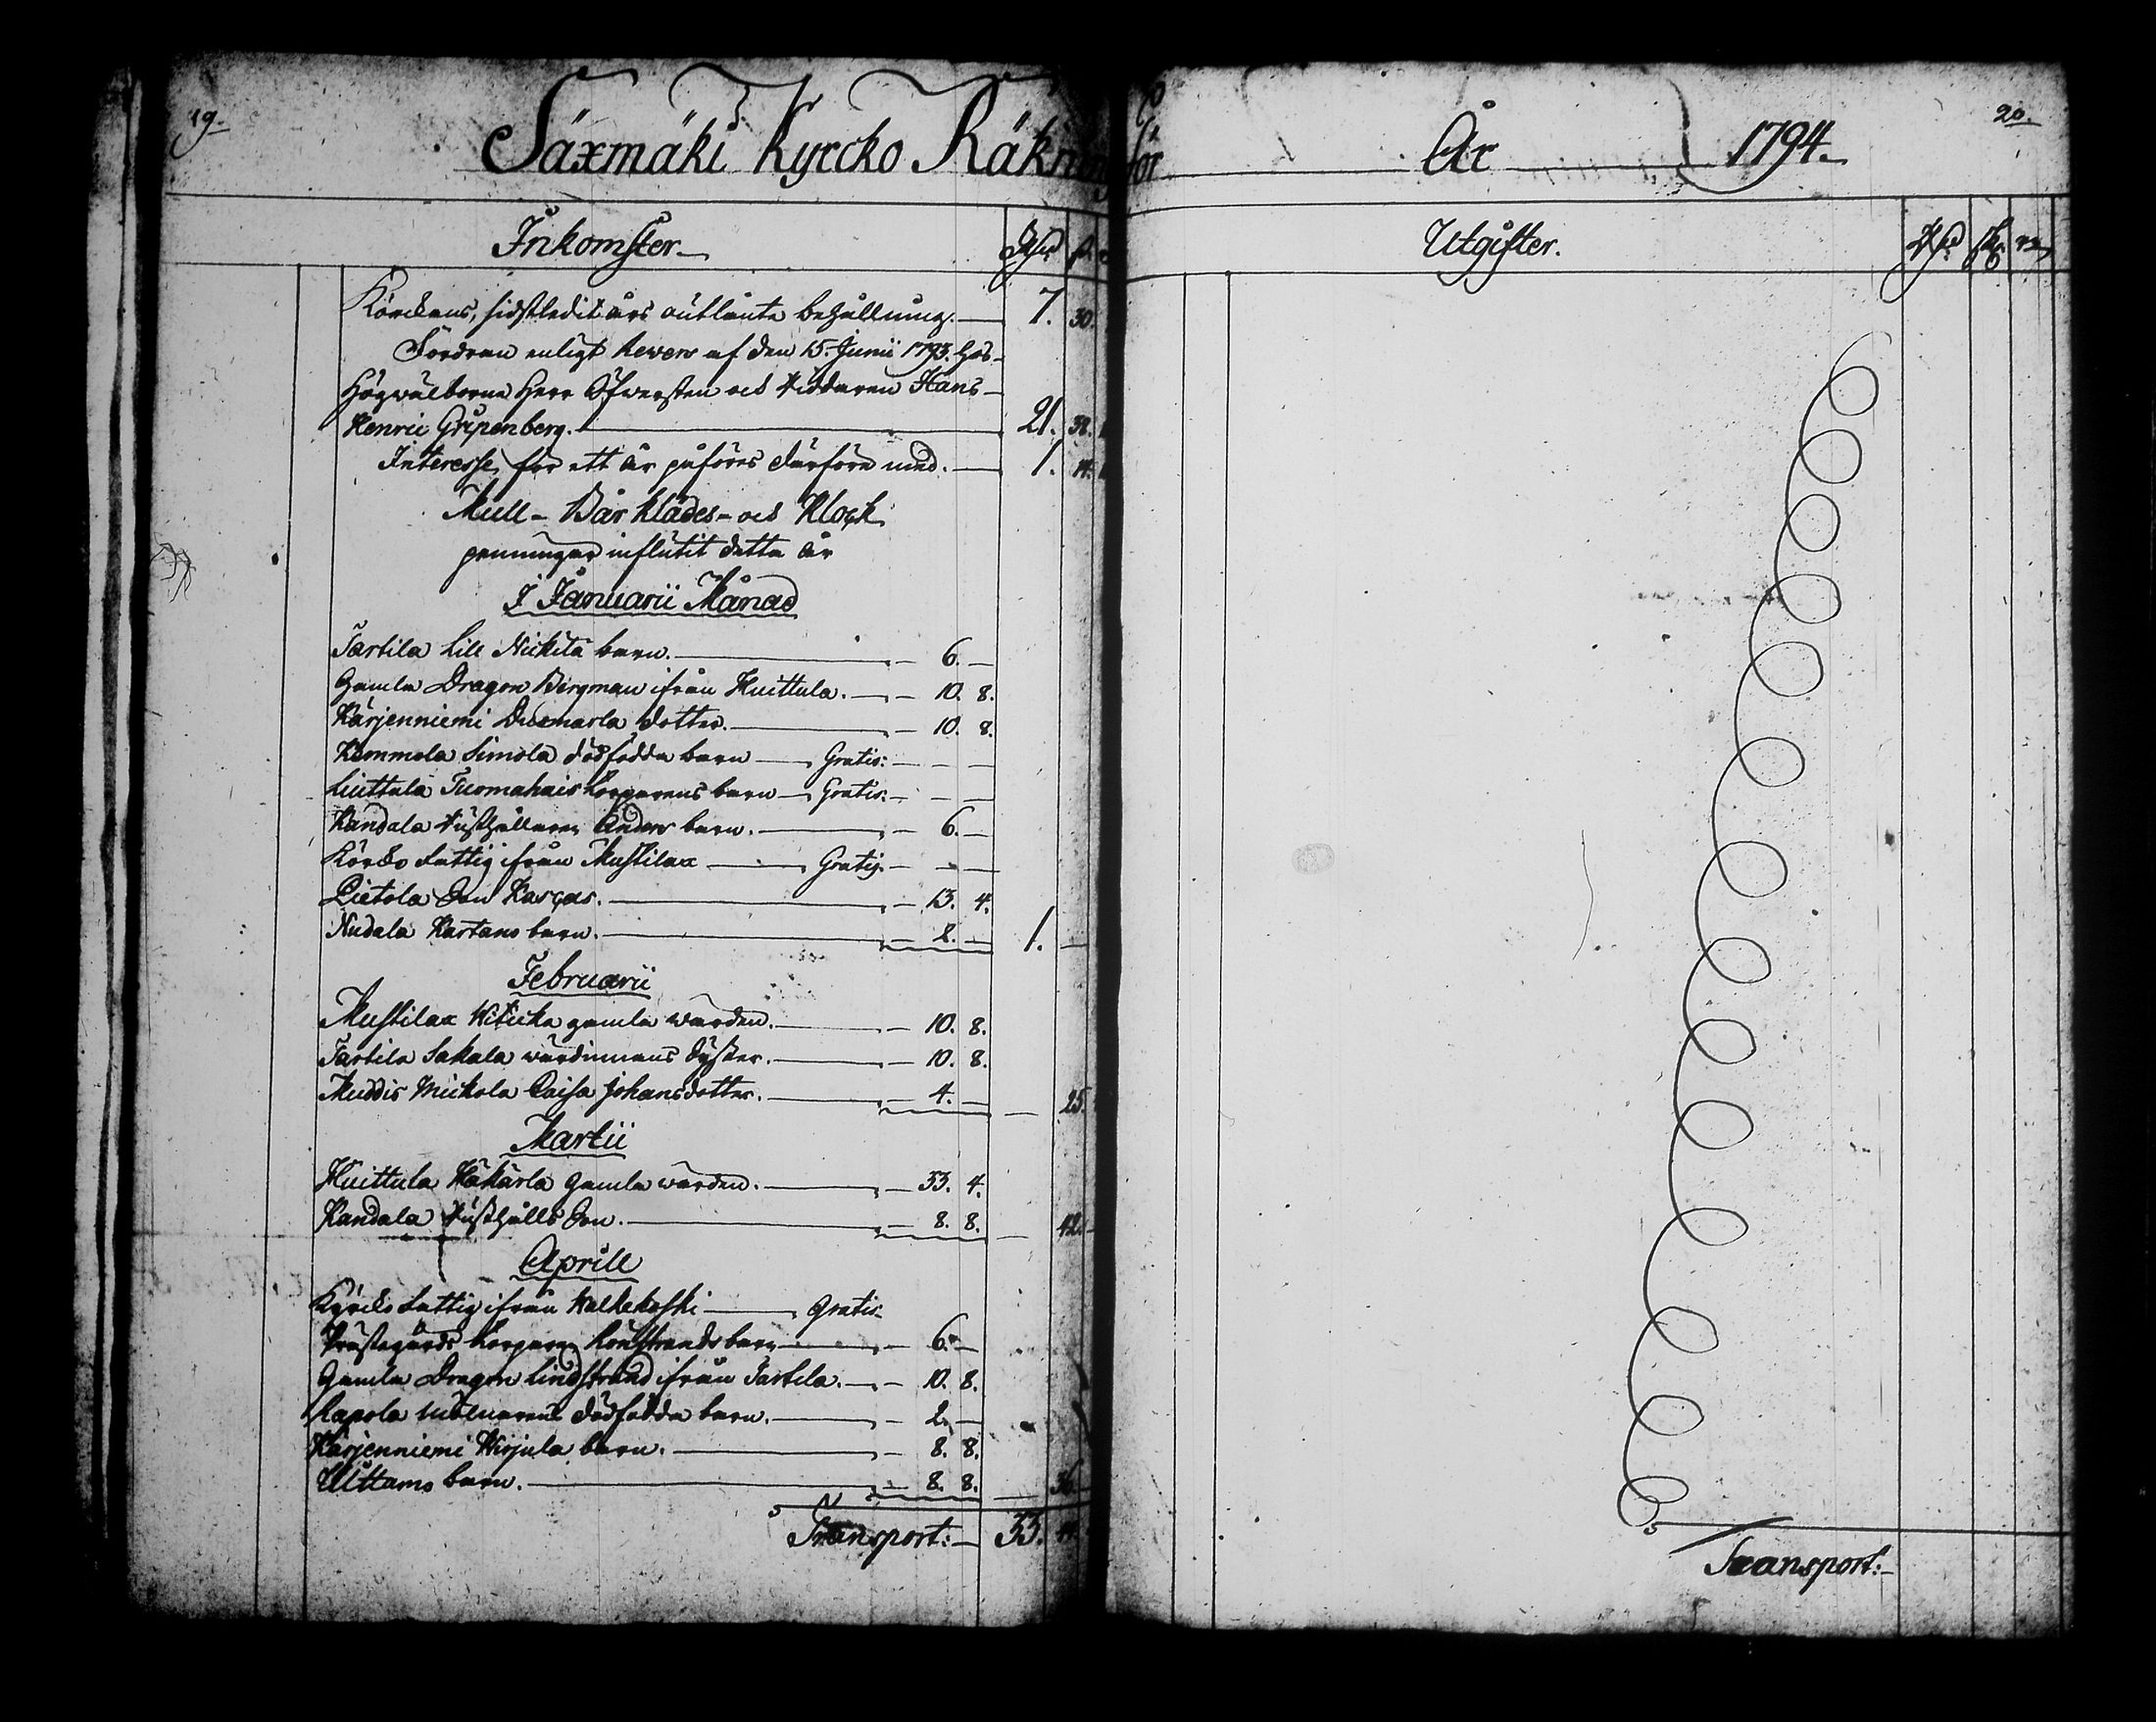 19.
Säxmäki Kyrcko Räkning
Inkomster.
Rdr
Kÿrckans, sidstledit års outlånta behållning. 7. 30.
Fordran enligt Revers af den 15. Junii 1793. hos
Högwälborne Herr Öfwersten och Riddaren Hans
Henric Gripenberg. 21. 38.
Interesse för ett år påföres därföre med. 1. 14.
Mull- Bår klädes- och Klock
penningar influtit detta år
I Januarii Månad
Tarttila Lill Nickilä barn. 6. —
Gamla Dragon Bergman ifrån Huittula. 10. 8.
Kärjenniemi dotter. 10. 8.
Kemmola Simola dödfödda barn Gratis: — —
Liuttula Tuomahais Torparens barn Gratis. — —
Kandala Rusthållaren Anders barn. 6. —
Kÿrcko Fattig ifrån Mustilax Gratis. — —
Pietola Son 13. 4.
Nudala Kartano barn. 2. — 1. —
Februarii
Mustilax gamla wärden. 10. 8.
Tarttila Sakala wärdinnans Syster. 10. 8.
Muddis Mickola Caisa Johansdotter. 4. — — 25.
Martii
Huittula gamla wärden. 33. 4.
Kandala Rusthålls Son. 8. 8. — 42.
Aprill
Kyrcko Fattig ifrån Walkekoski Gratis
Prästegårds Torparen barn 6. —
Gamla Dragon Lindstrand ifrån Tarttila. 10. 8.
Rapola dödfödda barn. 2. —
Kärjenniemi Wirjula barn. 8. 8.
Uittamo barn. 8. 8. — 36.
Transport: 33.
20.
för År 1794.
Utgifter.
Rdr sk. rs
Transport: